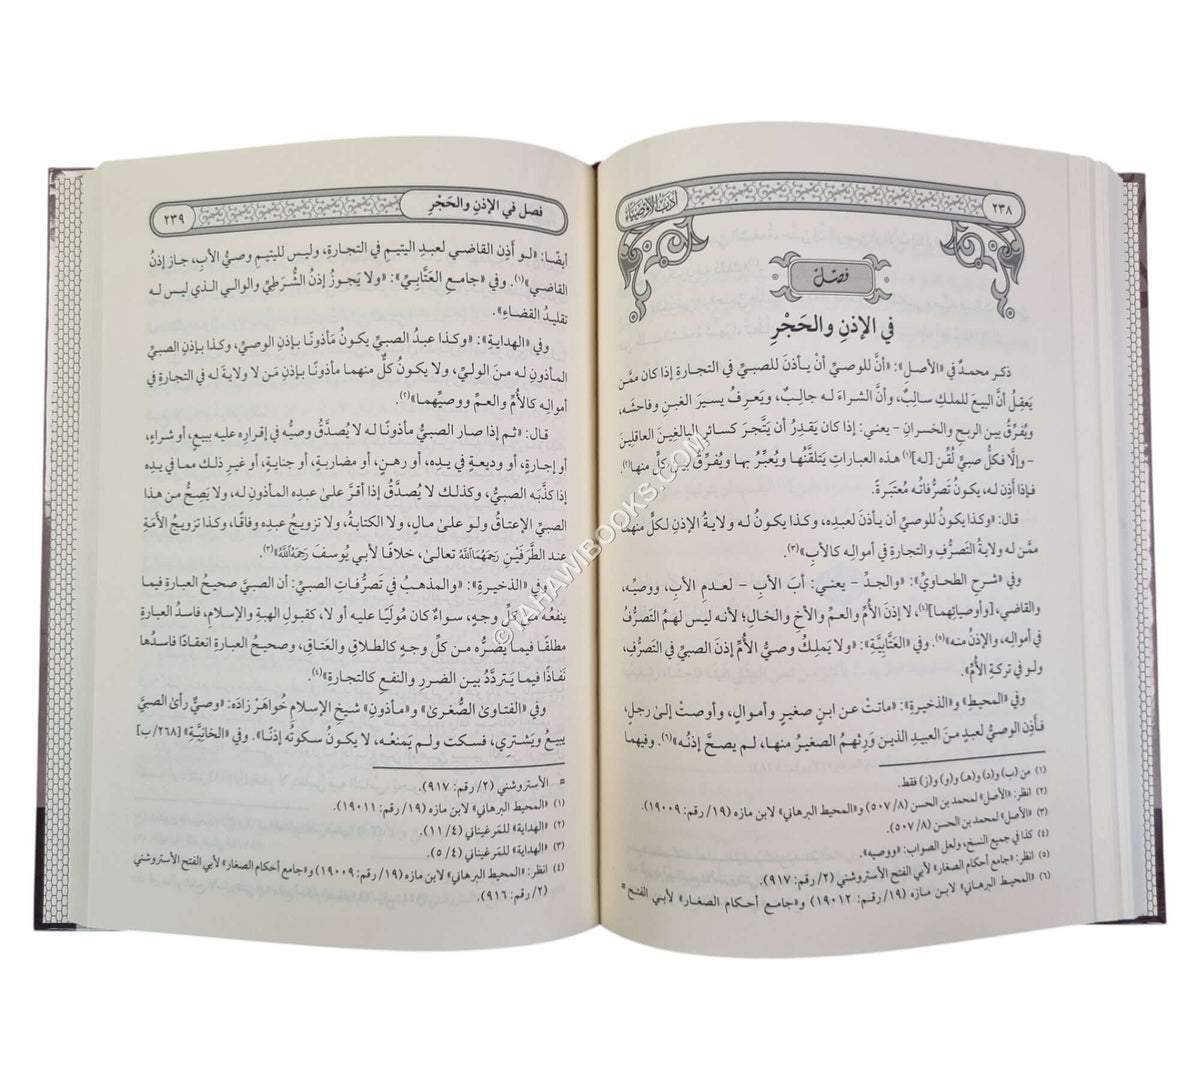 ٢٣٨
أدب الأوصياء
فصل
في الإذنِ والحَجْرِ
ذكر محمدٌ في «الأصلِ»: «أنَّ للوصيِّ أنْ يأذنَ للصبيِّ في التجارةِ إذا كان ممَّن
يَعقِلُ أنَّ البيعَ للملكِ سالِبٌ، وأنَّ الشراءَ له جالِبٌ، ويَعرِفُ يسيرَ الغبنِ وفاحشَه،
ويُفرِّقُ بين الربحِ والخسرانِ – يعني: إذا كان يَقدِرُ أن يَتَّجرَ كسائرِ البالغينَ العاقلِينَ
– وإلا فكلُّ صبيٍّ لُقِّن [له](١) هذه العباراتِ يَتلقَّنُها ويُعبِّرُ بها ويُفرِّقُ بينَ كلٍّ منها(٢)،
فإذا أَذِن له، يكونُ تَصرُّفاتُه مُعتبَرةً.
قال: «وكذا يكونُ للوصيِّ أن يأذنَ لعبدِه، وكذا يكونُ له ولايةُ الإذنِ لكلِّ منهما
ممَّن له ولايةُ التَصرُّفِ والتجارةِ في أموالِه كالأبِ»(٣).
وفي «شرحِ الطحاويِّ»: «والجدِّ – يعني: أبَ الأبِ – لعدمِ الأبِ، ووصيِّه،
والقاضي، [وأوصيائِهما](٤)، لا إذنَ الأُمِّ والعمِّ والأخِ والخالِ؛ لأنه ليس لهمُ التَصرُّفُ
في أموالِه، والإذنُ منه»(٥). وفي «العَتَّابِيَّةِ»: «ولا يَملِكُ وصيُّ الأُمِّ إذنَ الصبيِّ في التَصرُّفِ،
ولو في تركةِ الأُمِّ».
وفي «المحيطِ» و«الذخيرةِ»: «ماتتْ عن ابنٍ صغيرٍ وأموالٍ، وأوصتْ إلىٰ رجلٍ،
فأَذِن الوصيُّ لعبدٍ منَ العبيدِ الذين وَرِثهمُ الصغيرُ منها، لم يصحَّ إذنُه»(٦). وفيهما
(١) من (ب) و(د) و(هـ) و(و) و(ز) فقط.
(٢) انظر: «الأصل» لمحمد بن الحسن (٨/ ٥٠٧) و«المحيط البرهاني» لابن مازه (١٩/ رقم: ١٩٠٠٩).
(٣) «الأصل» لمحمد بن الحسن (٨/ ٥٠٧).
(٤) كذا في جميع النسخ، ولعل الصواب: «ووصيه».
(٥) انظر: «جامع أحكام الصغار» لأبي الفتح الأستروشني (٢/ رقم: ٩١٧).
(٦) «المحيط البرهاني» لابن مازه (١٩/ رقم: ١٩٠١٢) و«جامع أحكام الصغار» لأبي الفتح =
فصل في الإذنِ والحَجْرِ
٢٣٩
أيضًا: «لو أَذِن القاضي لعبدِ اليتيمِ في التجارةِ، وليس لليتيمِ وصيُّ الأبِ، جاز إذنُ
القاضي»(١). وفي «جامعِ العَتَّابِيِّ»: «ولا يَجوزُ إذنُ الشُّرَطِيِّ والوالي الذي ليس له
تقليدُ القضاءِ».
وفي «الهدايةِ»: «وكذا عبدُ الصبيِّ يكونُ مَأذونًا بإذنِ الوصيِّ، وكذا بإذنِ الصبيِّ
المأذونِ له منَ الوليِّ، ولا يكونُ كلٌّ منهما مأذونًا بإذنِ مَن لا ولايةَ له في التجارةِ في
أموالِه كالأُمِّ والعمِّ ووصيِّهما»(٢).
قال: «ثم إذا صار الصبيُّ مأذونًا له لا يُصدَّقُ وصيُّه في إقرارِه عليه ببيعٍ، أو شراءٍ،
أو إجارةٍ، أو وديعةٍ في يدِه، أو رهنٍ، أو مضاربةٍ، أو جنايةٍ، أو غيرِ ذلك مما في يدِه
إذا كذَّبَه الصبيُّ، وكذلك لا يُصدَّقُ إذا أقرَّ علىٰ عبدِه المأذونِ له، ولا يَصِحُّ من هذا
الصبيِّ الإعتاقُ ولو علىٰ مالٍ، ولا الكتابةُ، ولا تزويجُ عبدِه وفاقًا، وكذا تزويجُ الأَمَةِ
عند الطَّرَفَيْنِ رَحِمَهُمَااللَّهُ تعالىٰ، خلافًا لأبي يُوسفَ رَحِمَهُاللَّهُ»(٣).
وفي «الذخيرةِ»: «والمذهبُ في تَصرُّفاتِ الصبيِّ: أن الصبيَّ صحيحُ العبارةِ فيما
ينفعُه من كلِّ وجهٍ، سواءٌ كان مُولَيًا عليه أو لا، كقبولِ الهبةِ والإسلامِ، فاسدُ العبارةِ
مطلقًا فيما يَضرُّه من كلِّ وجهٍ كالطلاقِ والعتاقِ، وصحيحُ العبارةِ انعقادًا فاسدُها
نَفَاذًا فيما يَتردَّدُ بين الضررِ والنفعِ كالتجارةِ»(٤).
وفي «الفتاوىٰ الصُّغرىٰ» و«مأذونِ» شيخِ الإسلامِ خُواهَرْ زادَه: «وصيٌّ رأىٰ الصبيَّ
يبيعُ ويَشتري، فسكت ولم يَمنعْه، لا يكونُ سكوتُه إذنًا». وفي «الخانِيَّةِ» [٢٦٨/ ب]
= الأستروشني (٢/ رقم: ٩١٧).
(١) «المحيط البرهاني» لابن مازه (١٩/ رقم: ١٩٠١١).
(٢) «الهداية» للمَرغيناني (٤/ ١١).
(٣) «الهداية» للمَرغيناني (٤/ ٥).
(٤) انظر: «المحيط البرهاني» لابن مازه (١٩/ رقم: ١٩٠٠٩) و«جامع أحكام الصغار» لأبي الفتح الأستروشني
(٢/ رقم: ٩١٦).
© TAHAWIBOOKS.COM